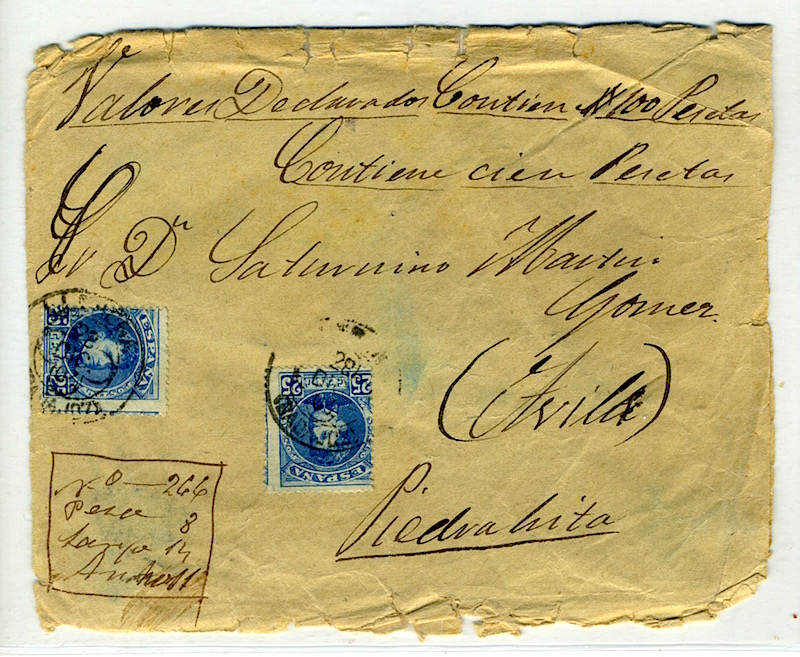 Valores Declarados Contiene 100 Pesetas
Contiene cien Pesetas
Sr Dn Saturnino Martin
Gomez
(Avila)
Piedrahita
25 25
ESPAÑA
25 25
ESPAÑA
No — 266
Pesa 8
Largo 14
Ancho 11